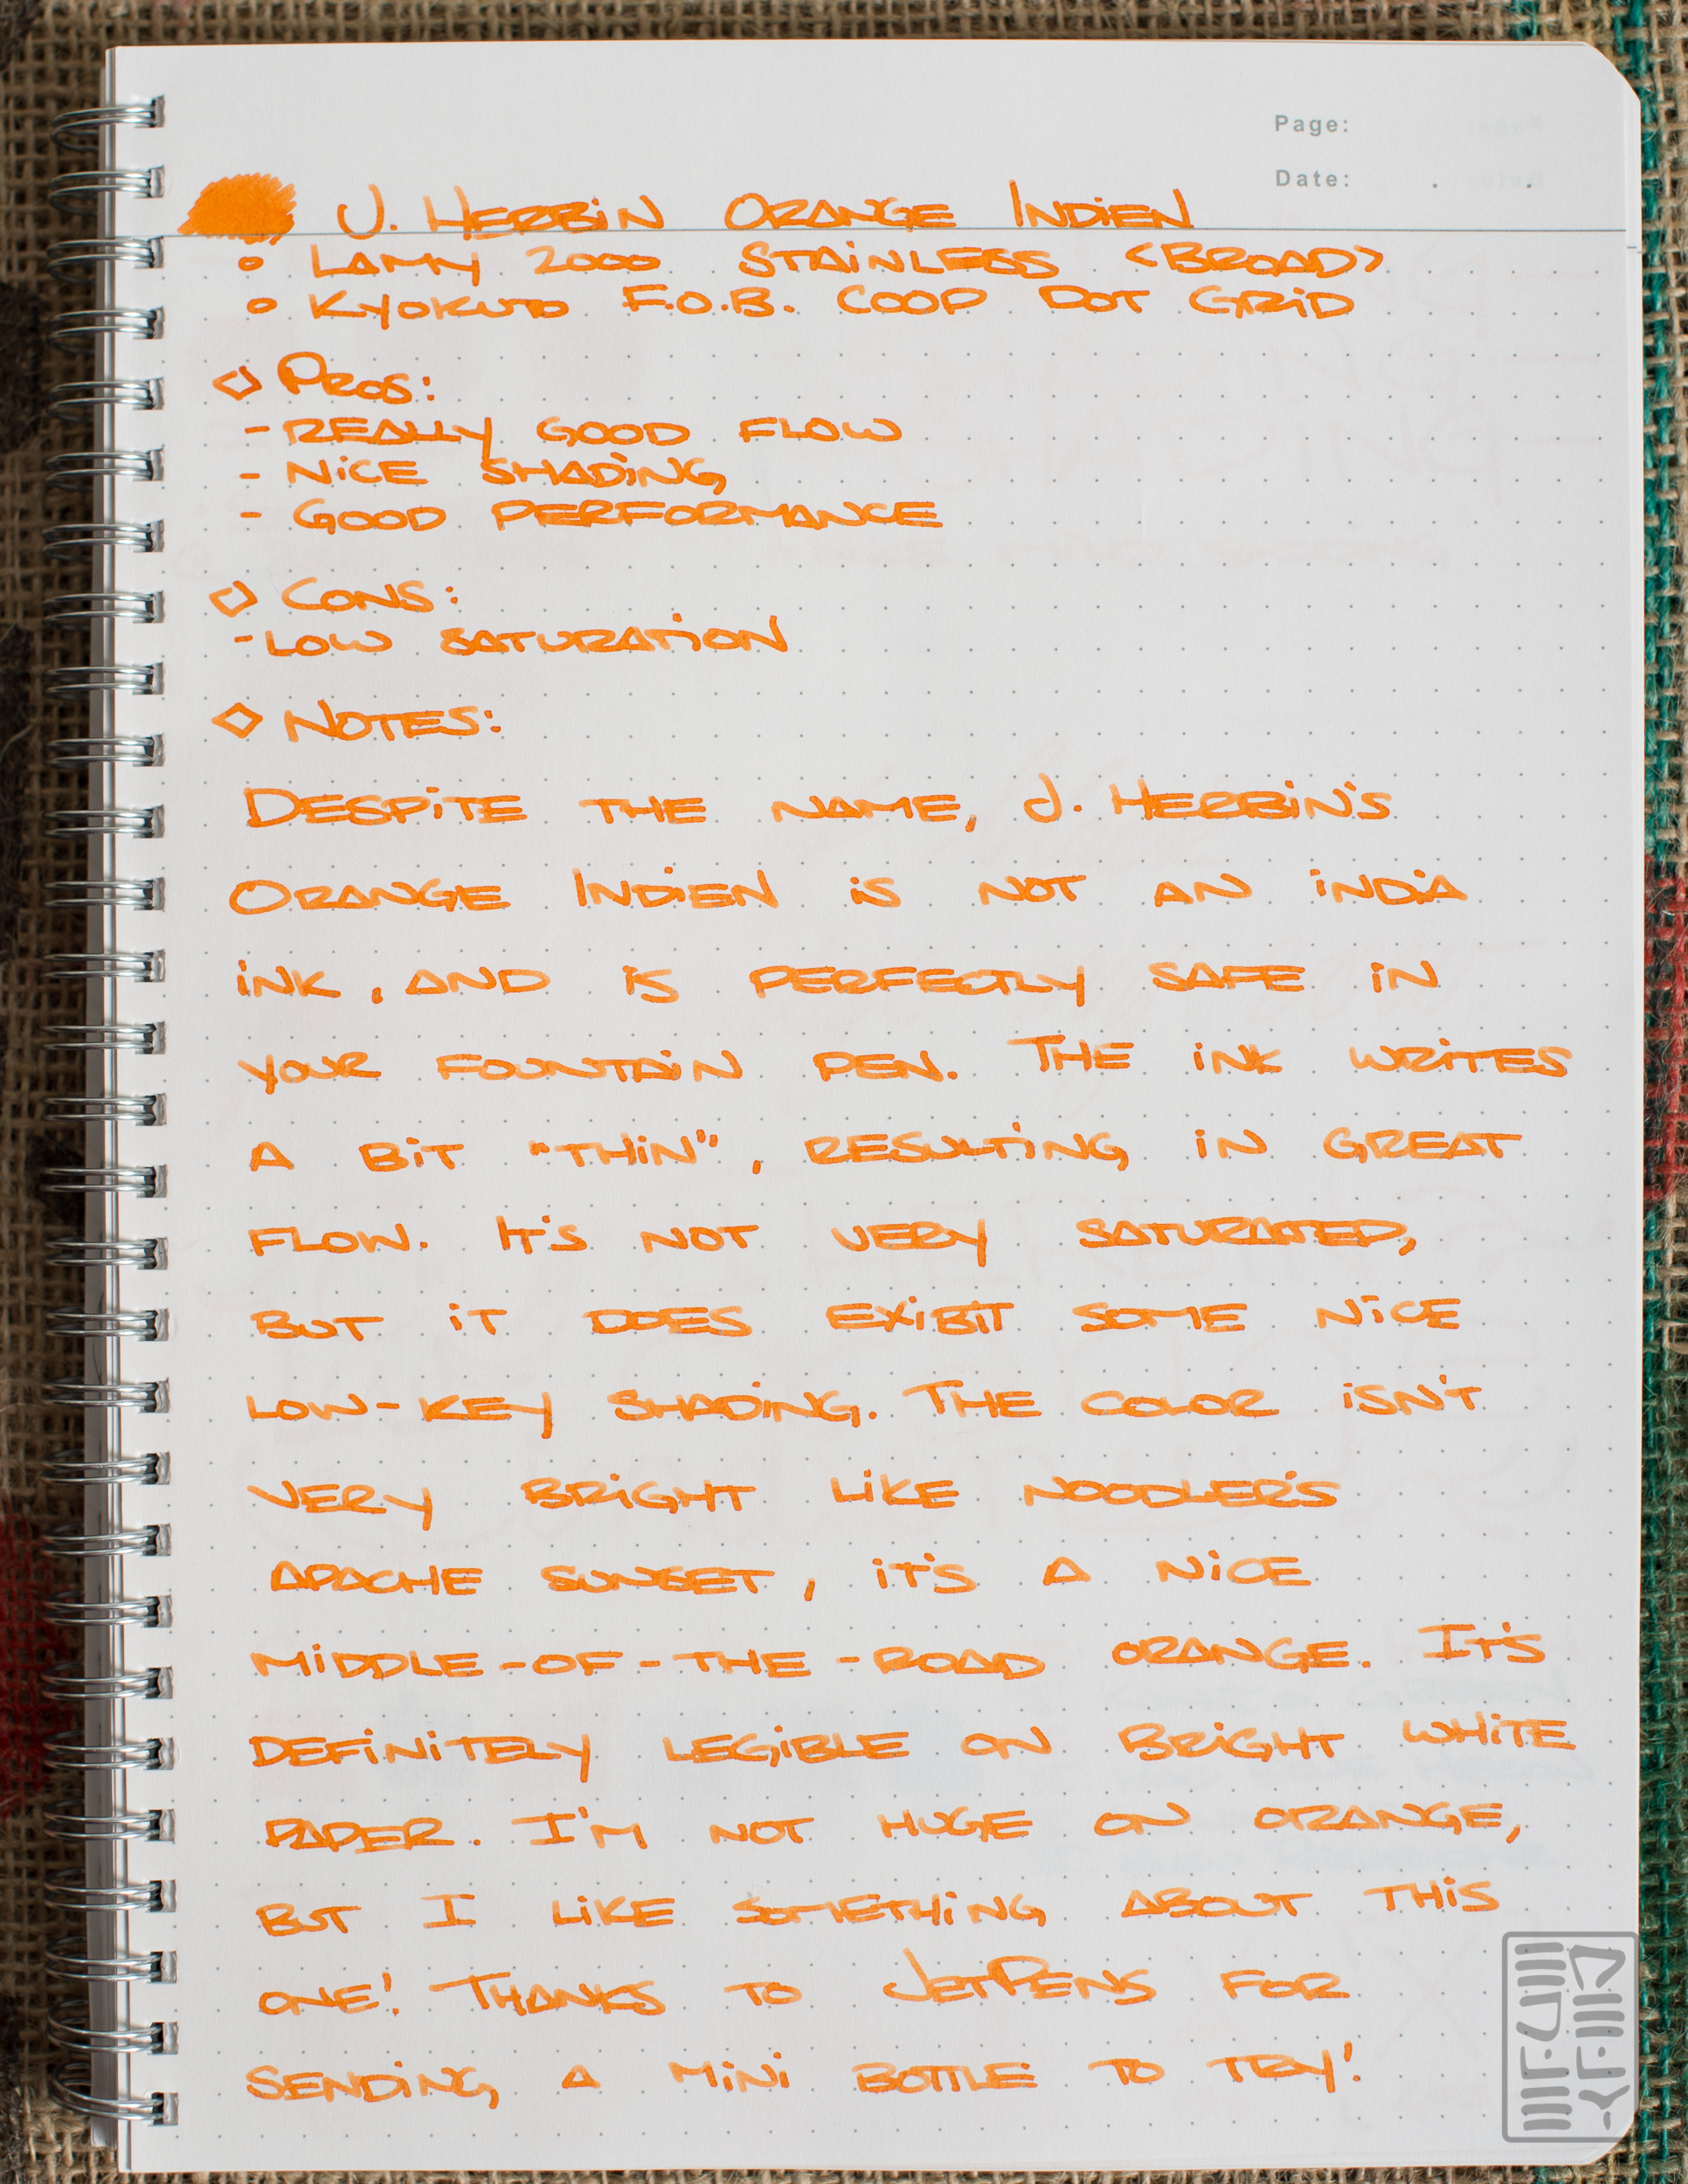 Page:
Date: . .
J. HERBIN ORANGE INDIEN
○ LAMY 2000 STAINLESS <BROAD>
○ KYOKUTO F.O.B. COOP DOT GRID
◇ PROS:
- REALLY GOOD FLOW
- NICE SHADING
- GOOD PERFORMANCE
◇ CONS:
- LOW SATURATION
◇ NOTES:
DESPITE THE NAME, J. HERBIN'S
ORANGE INDIEN IS NOT AN INDIA
INK, AND IS PERFECTLY SAFE IN
YOUR FOUNTAIN PEN. THE INK WRITES
A BIT "THIN", RESULTING IN GREAT
FLOW. IT'S NOT VERY SATURATED,
BUT IT DOES EXIBIT SOME NICE
LOW-KEY SHADING. THE COLOR ISN'T
VERY BRIGHT LIKE NOODLER'S
APACHE SUNSET, IT'S A NICE
MIDDLE-OF-THE-ROAD ORANGE. IT'S
DEFINITELY LEGIBLE ON BRIGHT WHITE
PAPER. I'M NOT HUGE ON ORANGE,
BUT I LIKE SOMETHING ABOUT THIS
ONE! THANKS TO JETPENS FOR
SENDING A MINI BOTTLE TO TRY!